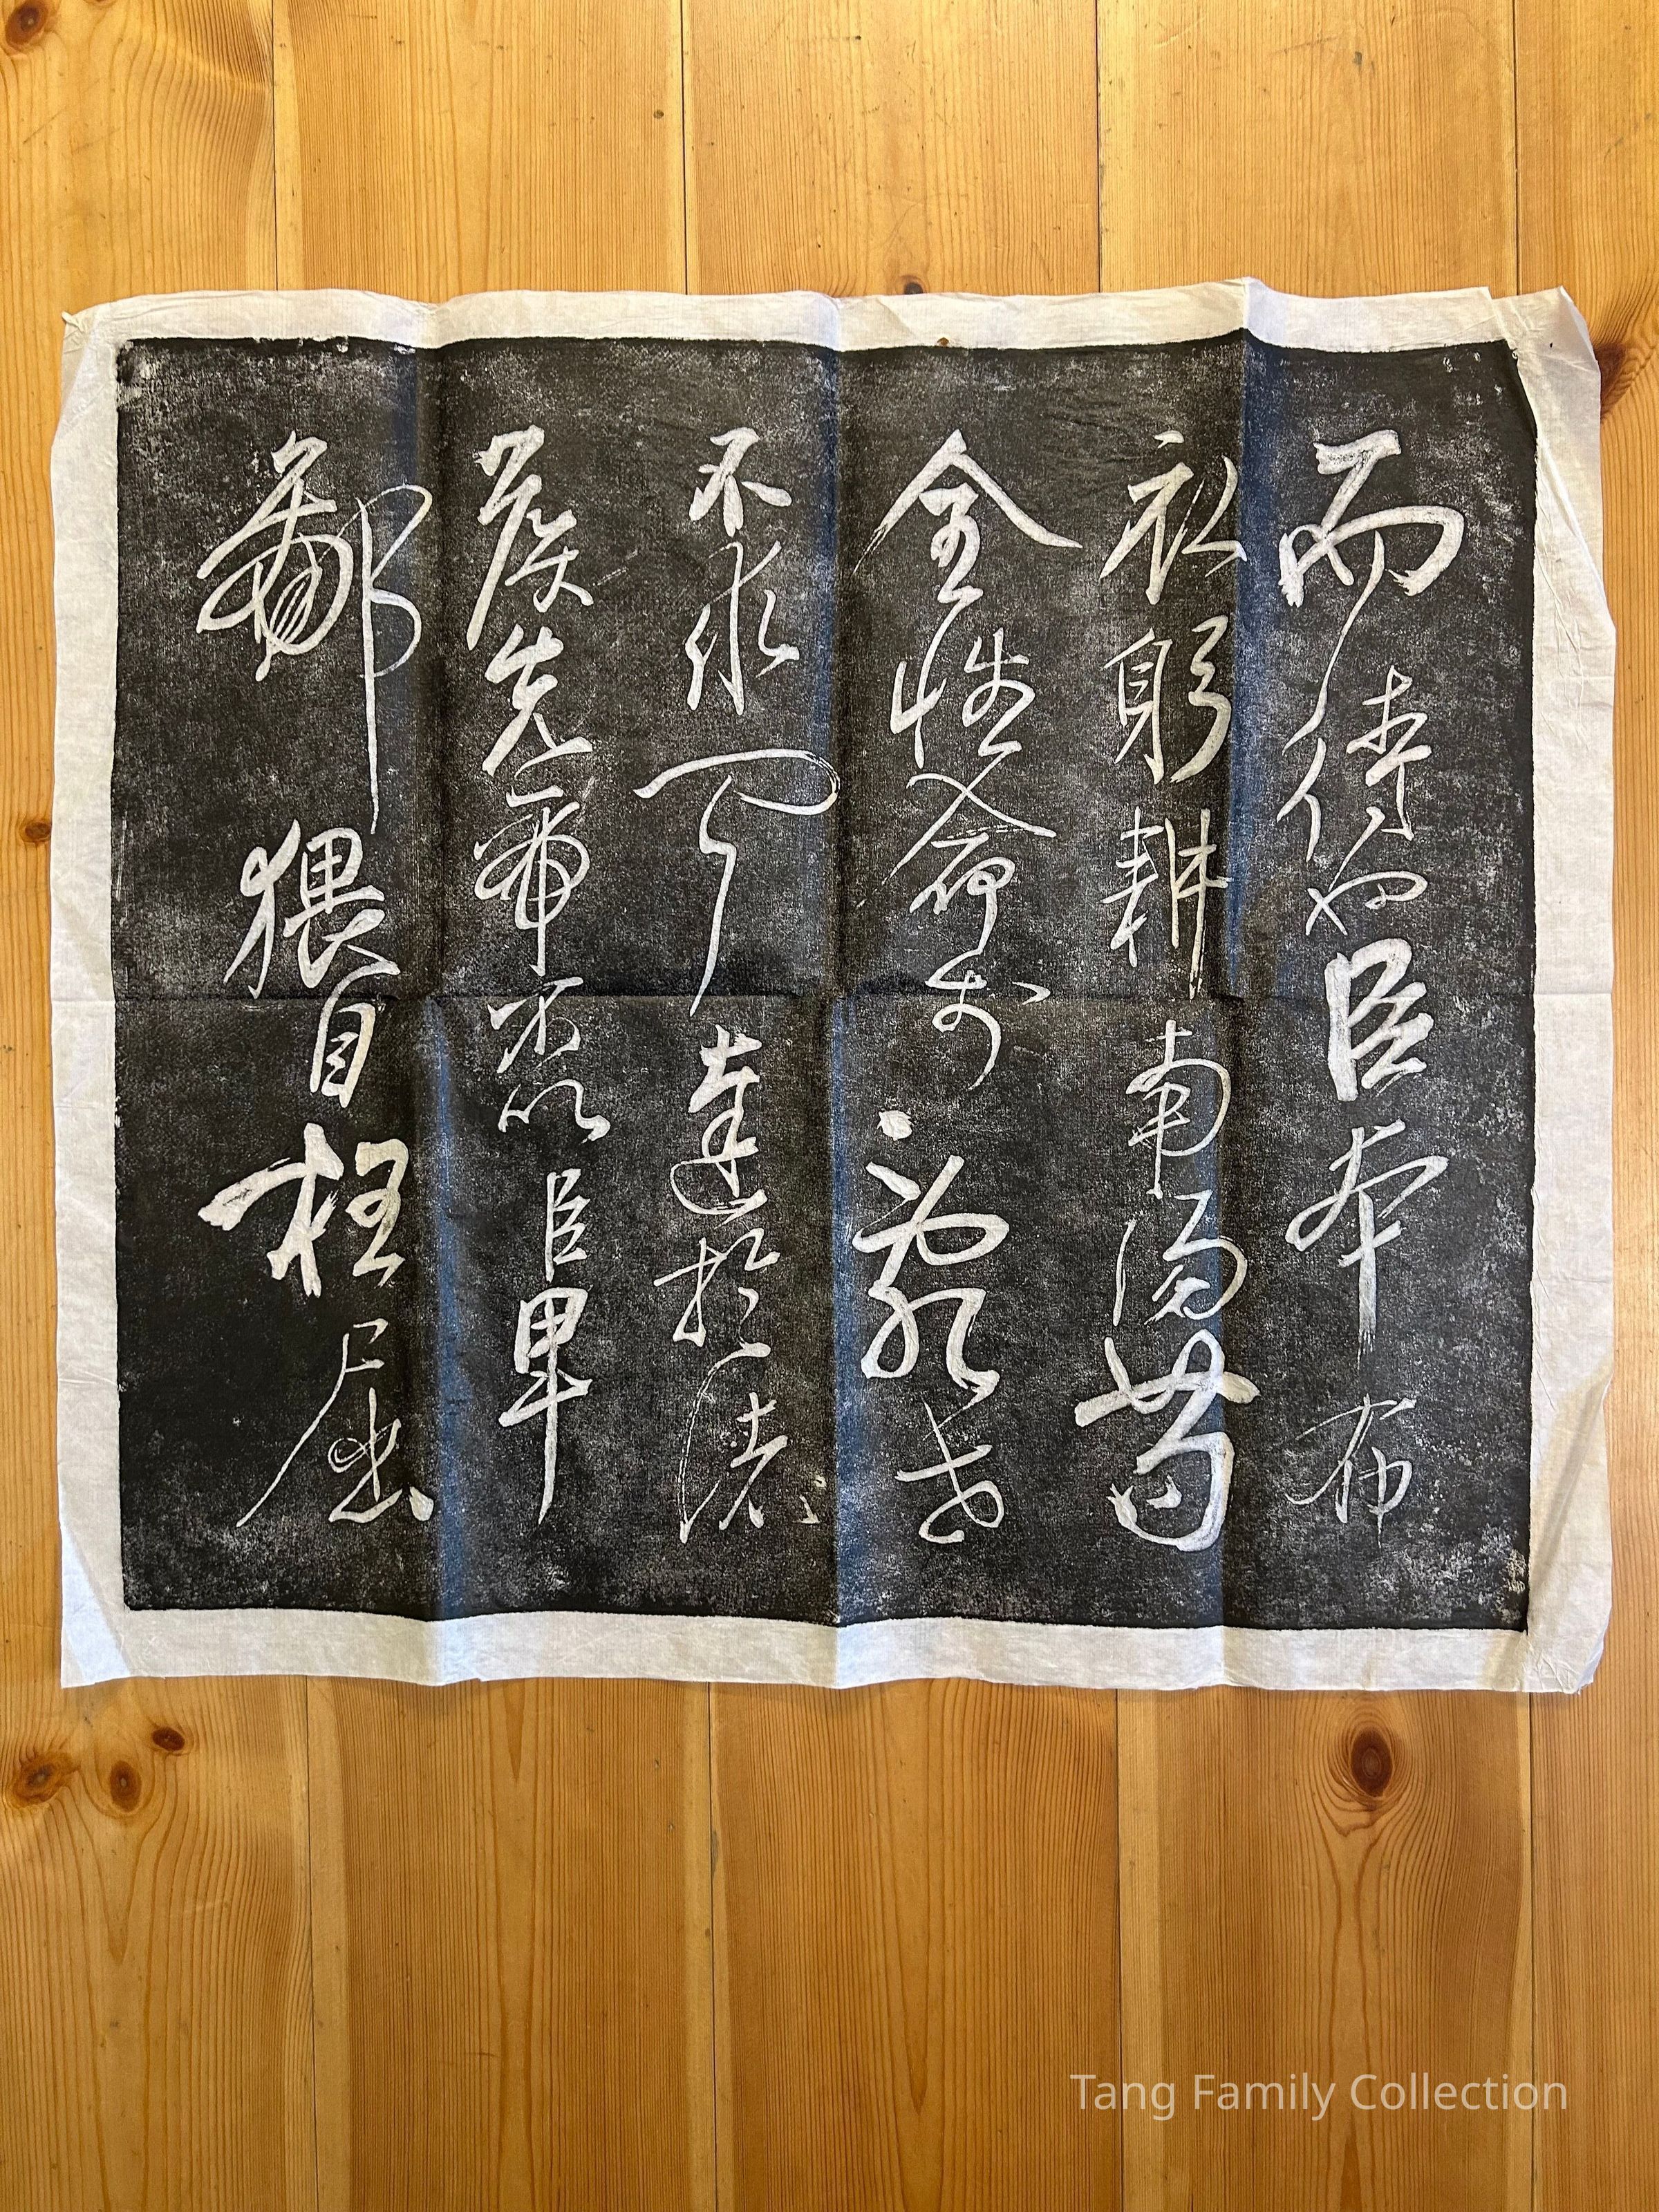 而待也臣本布
衣躬耕南陽苟
全性命於亂世
不求聞達於諸
侯先帝不以臣卑
鄙猥自枉屈
Tang Family Collection